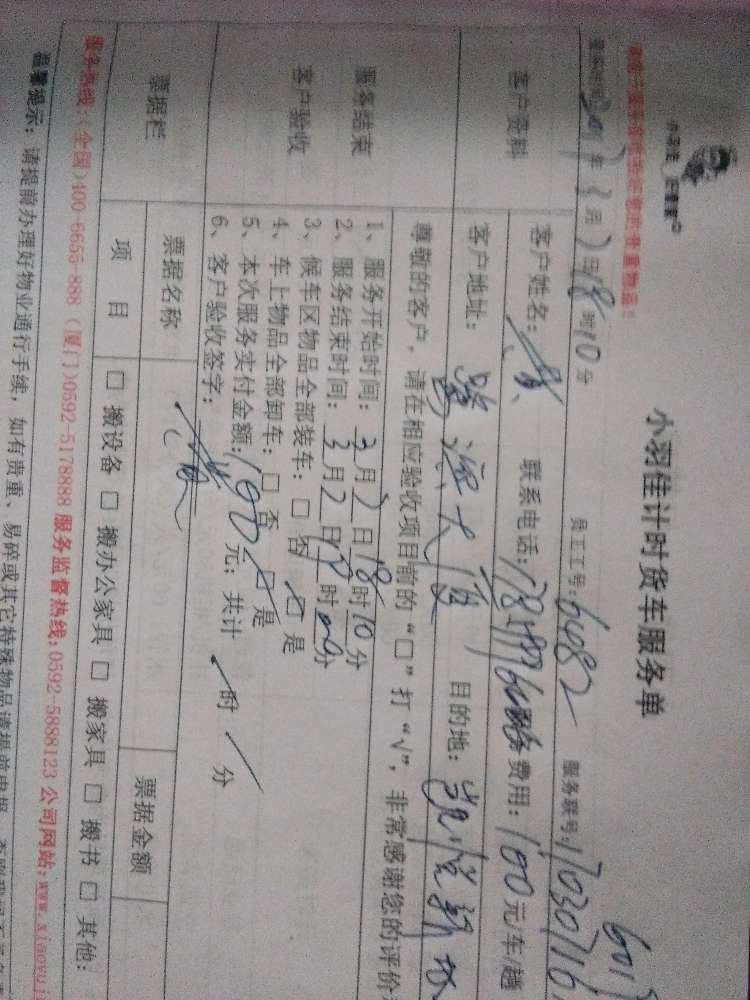 小羽佳计时货车服务单
员工工号:6482 服务联号:17030716
2017年3月2日18时10分
客户资料
客户姓名: 联系电话: 费用:100元/车/趟
客户地址: 大厦 目的地: 凯悦新
服务结束
客户验收
尊敬的客户,请在相应验收项目前的“□”打“√”,非常感谢您的评价
1、服务开始时间:3月2日18时10分
2、服务结束时间:3月2日 时 分
3、候车区物品全部装车:□否 ☑是
4、车上物品全部卸车:□否 ☑是
5、本次服务实付金额:100元;共计 / 时 / 分
6、客户验收签字:
票据栏
票据名称 票据金额
项 目 □搬设备 □搬办公家具 □搬家具 □搬书 □其他:
服务热线:(全国)400-6655-888 (厦门)0592-5178888 服务监督热线:0592-5888123 公司网站:www.xiaoyuj
温馨提示:请提前办理好物业通行手续,如有贵重、易碎或其它特殊物品请提前申报,否则我司不